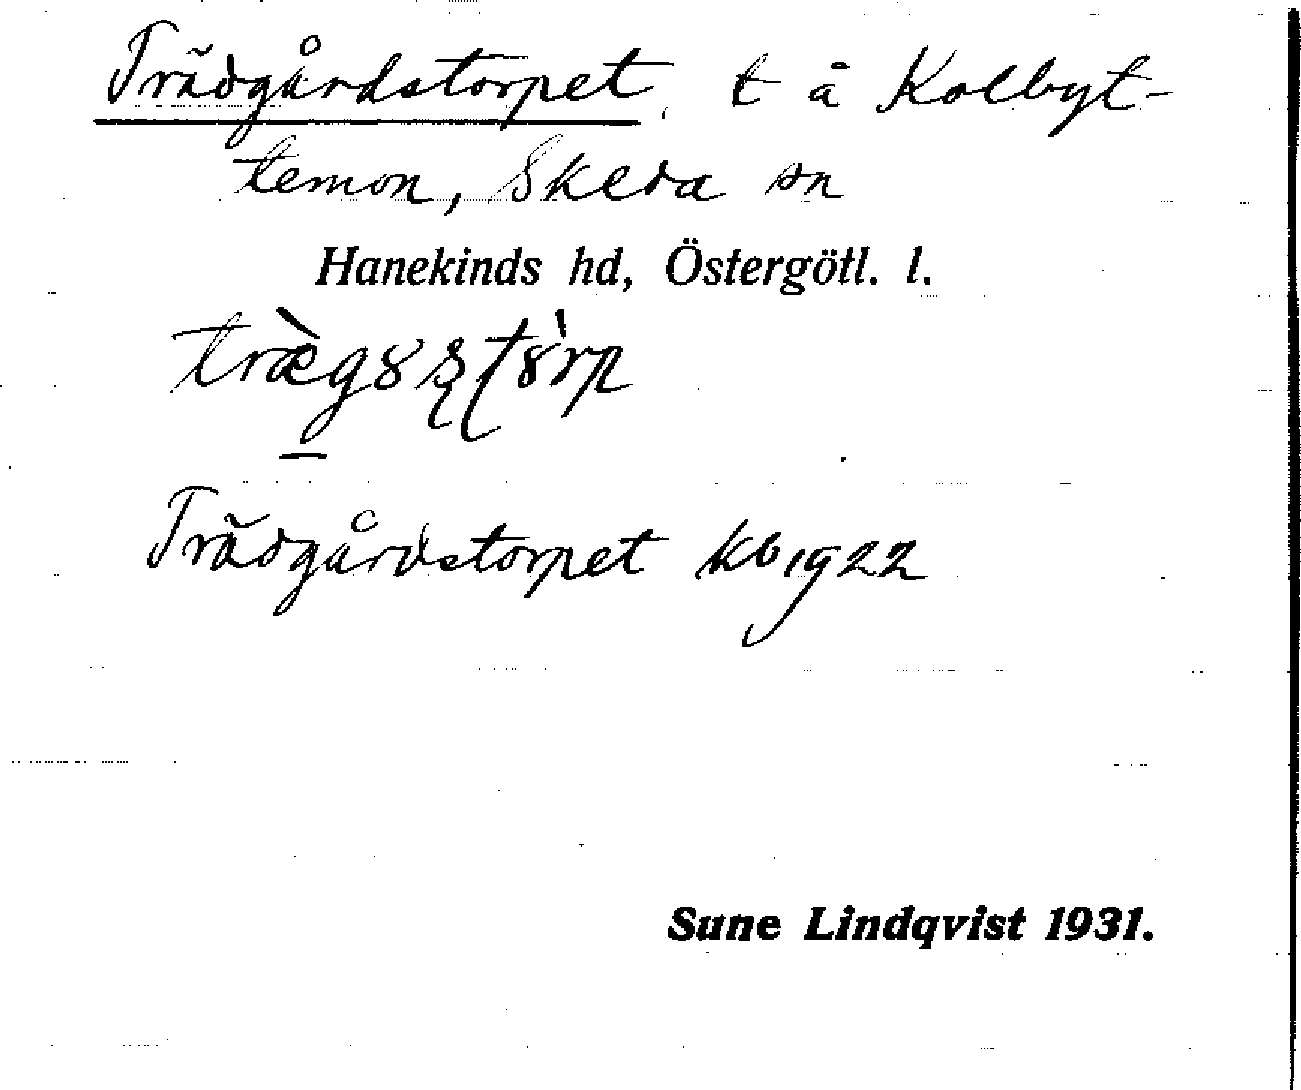 Trädgårdstorpet, t å Kolbyt-
temon, Skeda sn
Hanekinds hd, Östergötl. l.
Trädgårdstorpet kb 1922
Sune Lindqvist 1931.